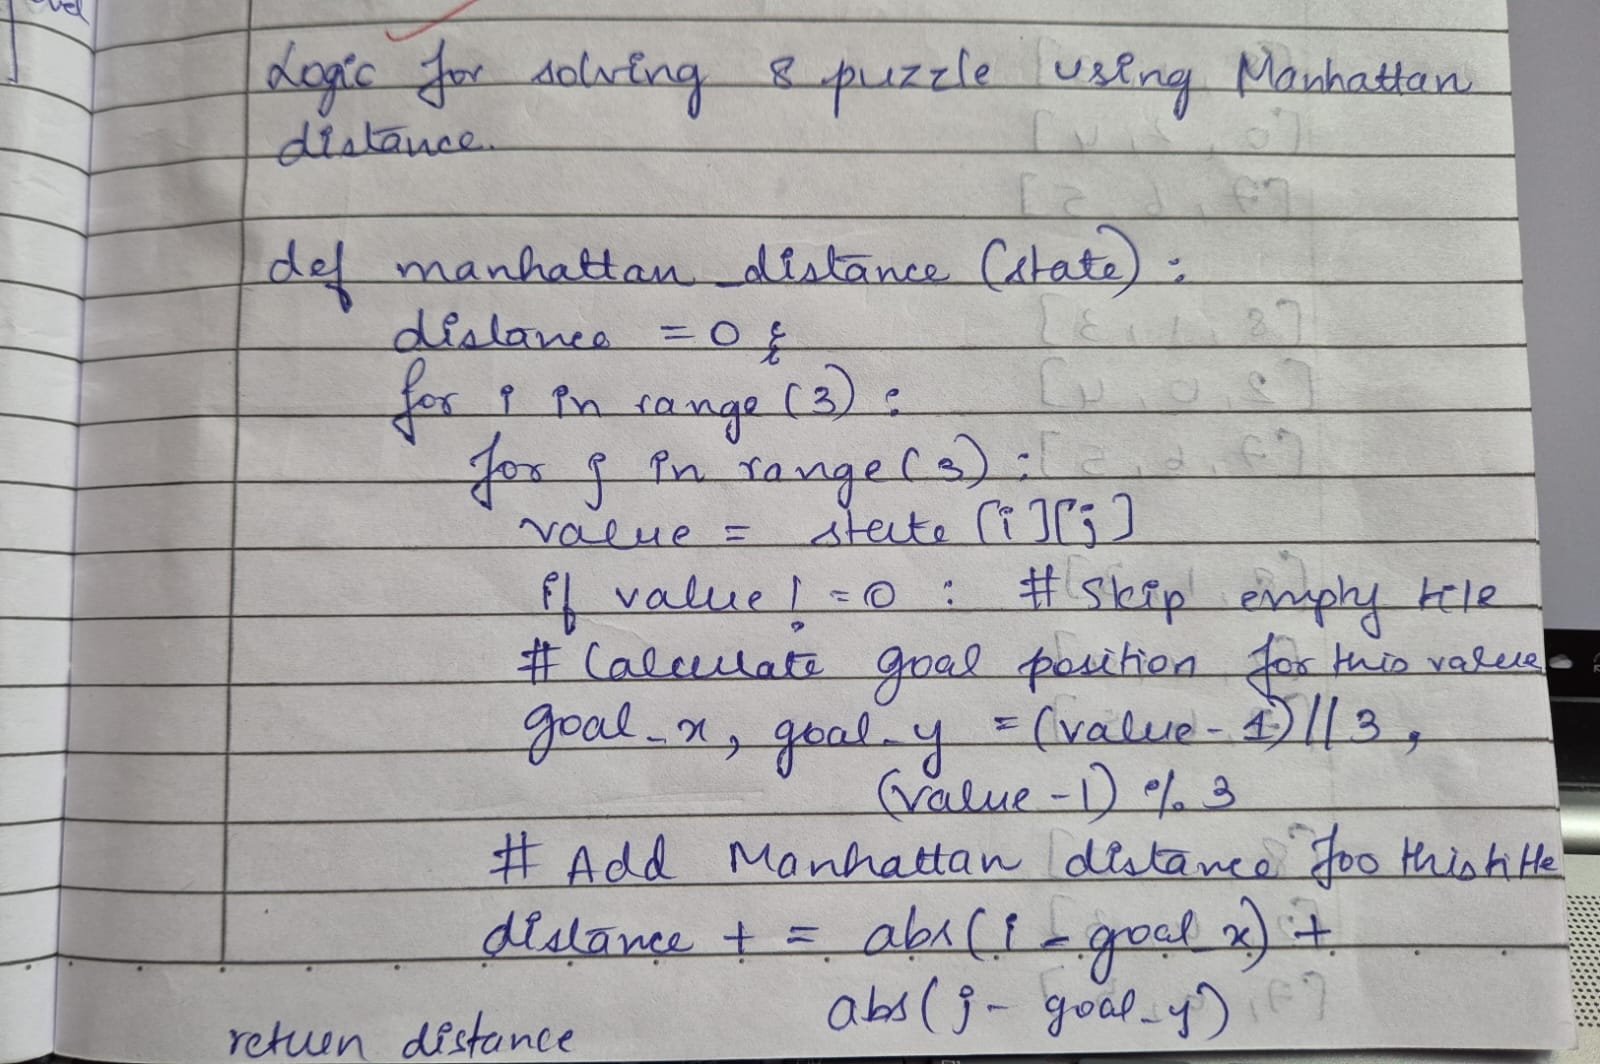 Logic for solving 8 puzzle using Manhattan
distance.
def manhattan_distance (state) :
distance = 0 ;
for i in range (3) :
for j in range (3) :
value = state [i][j]
if value != 0 : # Skip empty tile
# Calculate goal position for this value
goal_x, goal_y = (value - 1) // 3 ,
(value - 1) % 3
# Add Manhattan distance foo this title
distance + = abs (i - goal_x) +
abs (j - goal_y)
return distance